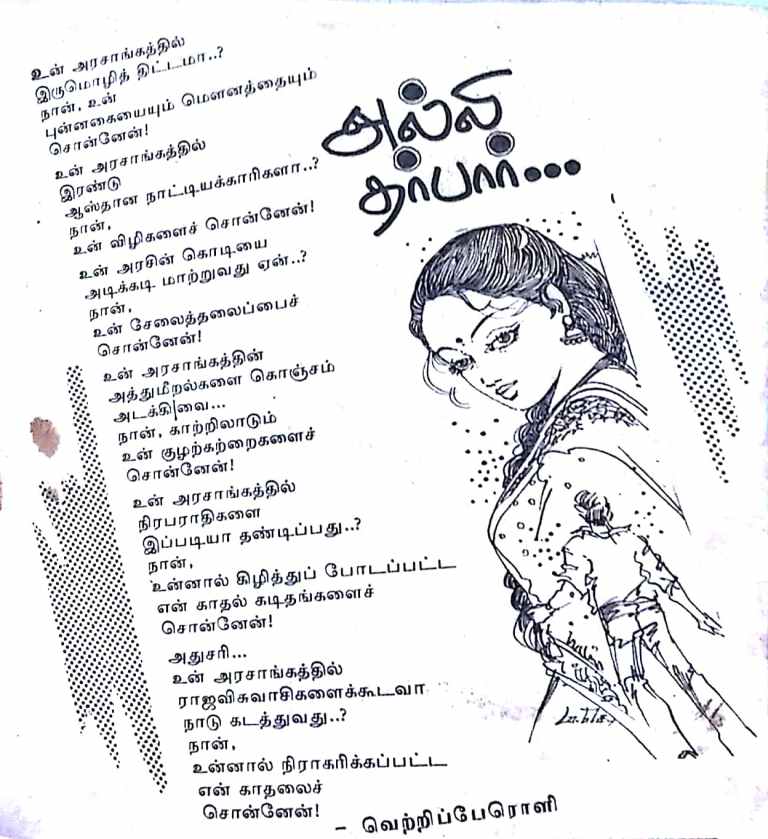 அல்லி
தர்பார்...
உன் அரசாங்கத்தில்
இருமொழித் திட்டமா..?
நான், உன்
புன்னகையையும் மௌனத்தையும்
சொன்னேன்!
உன் அரசாங்கத்தில்
இரண்டு
ஆஸ்தான நாட்டியக்காரிகளா..?
நான்,
உன் விழிகளைச் சொன்னேன்!
உன் அரசின் கொடியை
அடிக்கடி மாற்றுவது ஏன்..?
நான்,
உன் சேலைத்தலைப்பைச்
சொன்னேன்!
உன் அரசாங்கத்தின்
அத்துமீறல்களை கொஞ்சம்
அடக்கிவை...
நான், காற்றிலாடும்
உன் குழற்கற்றைகளைச்
சொன்னேன்!
உன் அரசாங்கத்தில்
நிரபராதிகளை
இப்படியா தண்டிப்பது..?
நான்,
உன்னால் கிழித்துப் போடப்பட்ட
என் காதல் கடிதங்களைச்
சொன்னேன்!
அதுசரி...
உன் அரசாங்கத்தில்
ராஜவிசுவாசிகளைக்கூடவா
நாடு கடத்துவது..?
நான்,
உன்னால் நிராகரிக்கப்பட்ட
என் காதலைச்
சொன்னேன்!
– வெற்றிப்பேரொளி